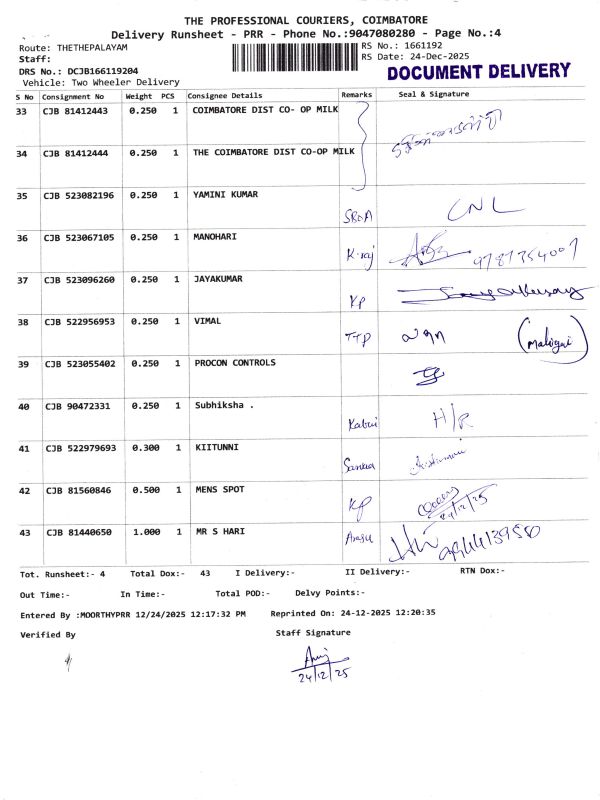 THE PROFESSIONAL COURIERS, COIMBATORE
Delivery Runsheet - PRR - Phone No.:9047080280 - Page No.:4
Route: THETHEPALAYAM
RS No.: 1661192
Staff:
RS Date: 24-Dec-2025
DRS No.: DCJB166119204
DOCUMENT DELIVERY
Vehicle: Two Wheeler Delivery
S No Consignment No Weight PCS Consignee Details Remarks Seal & Signature
33 CJB 81412443 0.250 1 COIMBATORE DIST CO- OP MILK
34 CJB 81412444 0.250 1 THE COIMBATORE DIST CO-OP MILK
35 CJB 523082196 0.250 1 YAMINI KUMAR CNL
36 CJB 523067105 0.250 1 MANOHARI K.raj
37 CJB 523096260 0.250 1 JAYAKUMAR KP
38 CJB 522956953 0.250 1 VIMAL TTP
39 CJB 523055402 0.250 1 PROCON CONTROLS
40 CJB 90472331 0.250 1 Subhiksha . H/R
41 CJB 522979693 0.300 1 KIITUNNI
42 CJB 81560846 0.500 1 MENS SPOT KP 24/12/25
43 CJB 81440650 1.000 1 MR S HARI
Tot. Runsheet:- 4 Total Dox:- 43 I Delivery:- II Delivery:- RTN Dox:-
Out Time:- In Time:- Total POD:- Delvy Points:-
Entered By :MOORTHYPRR 12/24/2025 12:17:32 PM Reprinted On: 24-12-2025 12:20:35
Verified By Staff Signature
24/12/25